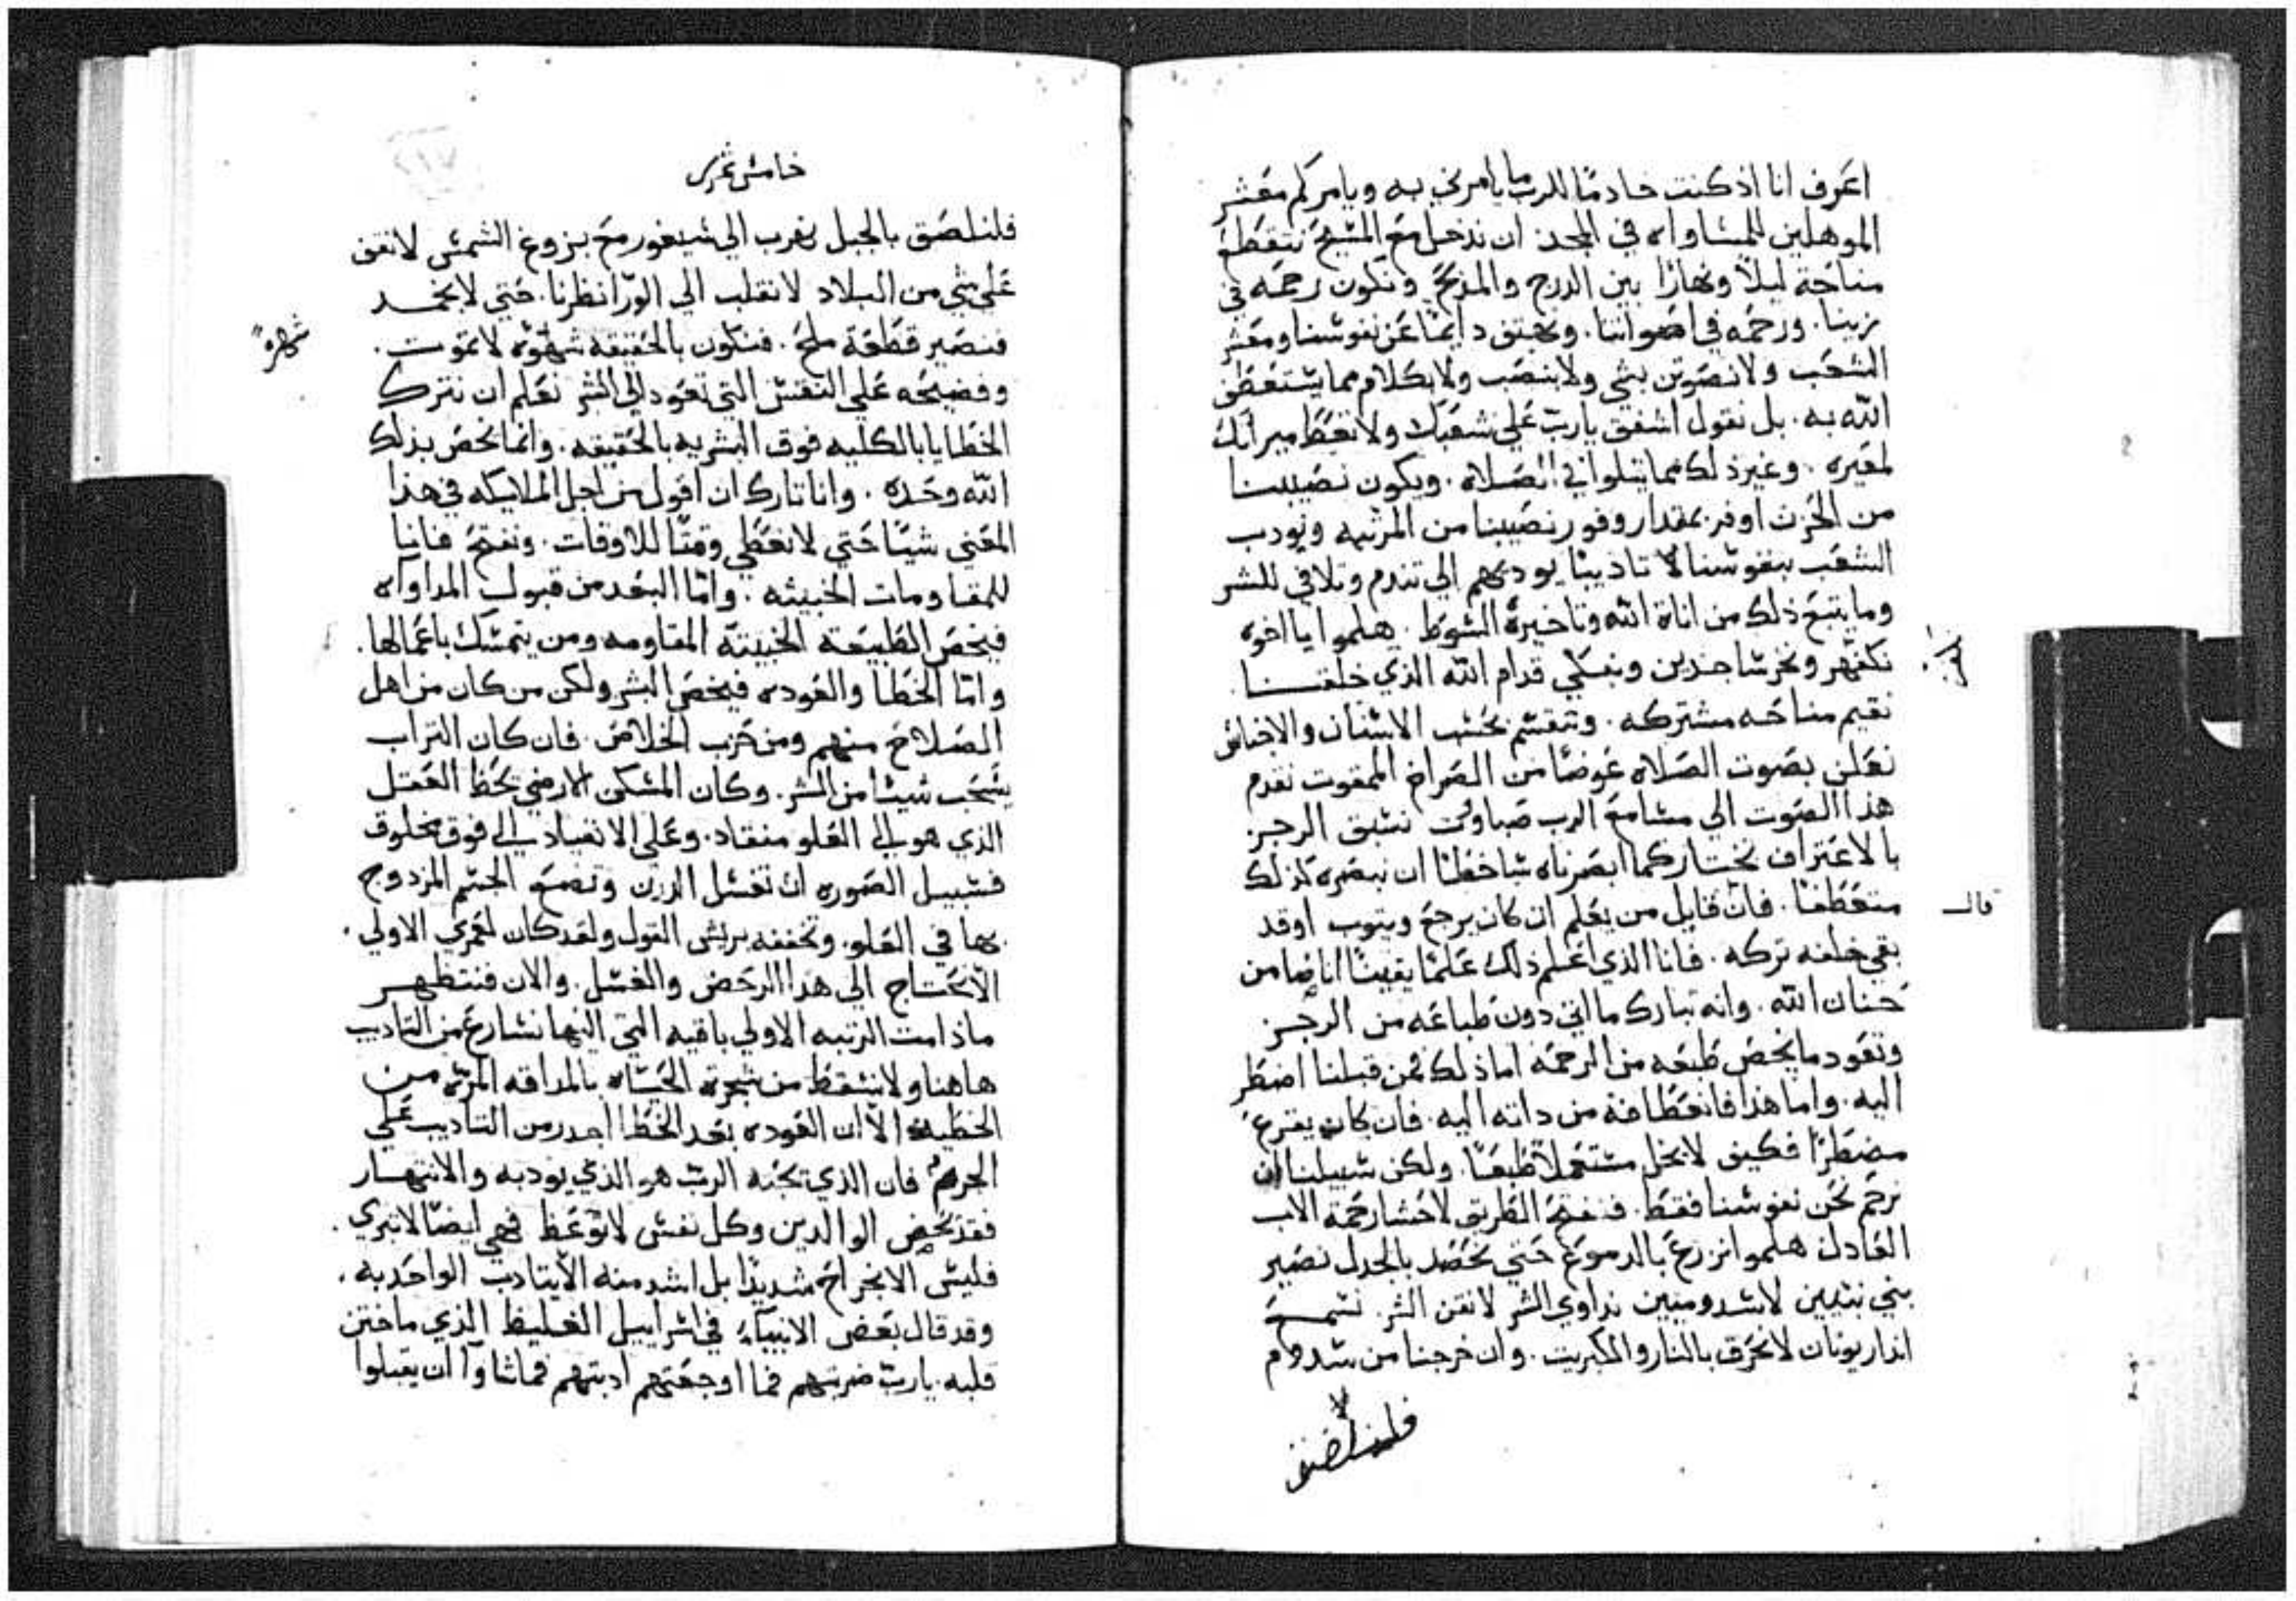 اعرف انا اذ كنت خادمًا للرب ما يامرني به ويامركم معشر
الموهلين للمساواه في المجد ان ندخل مع المسيح نتقطع
مناحة ليلاً ونهارًا بين الدرج والمذبح ونكون رحمه في
زينا . ورحمه في اصواتنا . ونهتف دايمًا عن نفوسنا ومعشر
الشعب ولا نصوتن بشي ولا بنصب ولا بكلام مما يستعطف
الله به . بل نقول اشفق يارب علي شعبك ولا تعط ميراثك
لمعيره . وغير ذلك مما يتلوا في الصلاه . ويكون نصيبنا
من الحزن اوفر بمقدار وفور نصيبنا من المرتبه ونودب
الشعب بنفوسنا تاديبًا يوديهم الي تندم وتلافي للشر
وما يتبع ذلك من اناة الله وتاخيره السوط . هلموا يا اخوه
نكفهر ونخر ساجدين ونبكي قدام الله الذي خلقنا
نقيم مناحه مشتركه . وتنقسم بحسب الاسنان والاجناس
نعلن بصوت الصلاه عوضًا من الصراخ الممقوت نقدم
هذا الصوت الي مسامع الرب صباوت نسبق الرجز
بالاعتراف نختار كما ابصرناه ساخطًا ان نبصره كذلك
قال
متعطفًا . فان قايل من يعلم ان كان يرجع ويتوب اوقد
بقي خلفه تركه . فانا الذي اعلم ذلك علمًا يقينًا انا ضامن
حنان الله . وانه تبارك ما اتي دون طباعه من الرجز
وتعود ما يخص طبعه من الرحمه اما ذلك فمن قبلنا اضطر
اليه . واما هذا فانعطافه من ذاته اليه . فان كان يقرع
مضطرًا فكيف لا يخل مستعملاً طبعًا . ولكن سبيلنا ان
نرحم نحن نفوسنا فقط . فنفتح الطريق لاحشا رحمة الاب
العادل هلموا نزرع بالدموع حتي نحصد بالجدل نصير
بني نينوي لا سدوميين نداوي الشر لا نفن الشر . نسمع
انذار يونان لا نحرق بالنار والكبريت . وان خرجنا من سدوم
فلنلصق
خامس عشر
فلنلصق بالجبل نهرب الي سيغور مع بزوغ الشمس لا نقف
علي شي من البلاد لا نقلب الي الورا نظرنا . حتي لا نجمد
فنصير قطعة ملح . فنكون بالحقيقه شهره لا تموت .
شهره
وفضيحه علي النفس التي تعود الي الشر نعلم ان نترك
الخطايا بالكليه فوق البشريه بالحقيقه . وانما يخص بذلك
الله وحده . وانا تارك ان اقول من اجل الملايكه في هذا
المعني شيًا حتي لا نعطي وقتًا للاوقات . ونفتح فانيا
للمقاومات الخبيثه . واما البعد من قبول المداواه
فيخص الطبيعة الخبيثه المقاومه ومن يتمسك باعمالها .
واما الخطا والعوده فيخص البشر ولكن من كان من اهل
الصلاح منهم ومن حزب الخلاص . فان كان التراب
يسحب شيئًا من الشر . وكان المسكن الارضي يحط العقل
الذي هو الي العلو منقاد . وعلي الانقياد الي فوق مخلوق
فسبيل الصوره ان تغسل الدرن وتضع الجسم المزدوج
بها في العلو . وتخففه بريش القول ولقد كان لعمري الاولي .
الا نحتاج الي هذا الرحض والغسل . والان فننتظهر
ماذامت الرتبه الاولي باقيه التي اليها نسارع من التاديب
هاهنا ولا نسقط من شجرة الحياه بالمداقه المره من
الخطيه الا ان العوده بعد الخطا اجدر من التاديب علي
الجرم فان الذي يحبه الرب هو الذي يودبه والانتهار
فقد يخص الوالدين وكل نفس لا توعظ فهي ايضًا لا تبري .
فليس الانجراح شديدًا بل اشد منه الا يتادب الواحد به .
وقد قال بعض الانبياء في اسراييل الغليظ الذي ما ختن
قلبه . يارب ضربتهم فما اوجعتهم ادبتهم فما شاوا ان يقبلوا